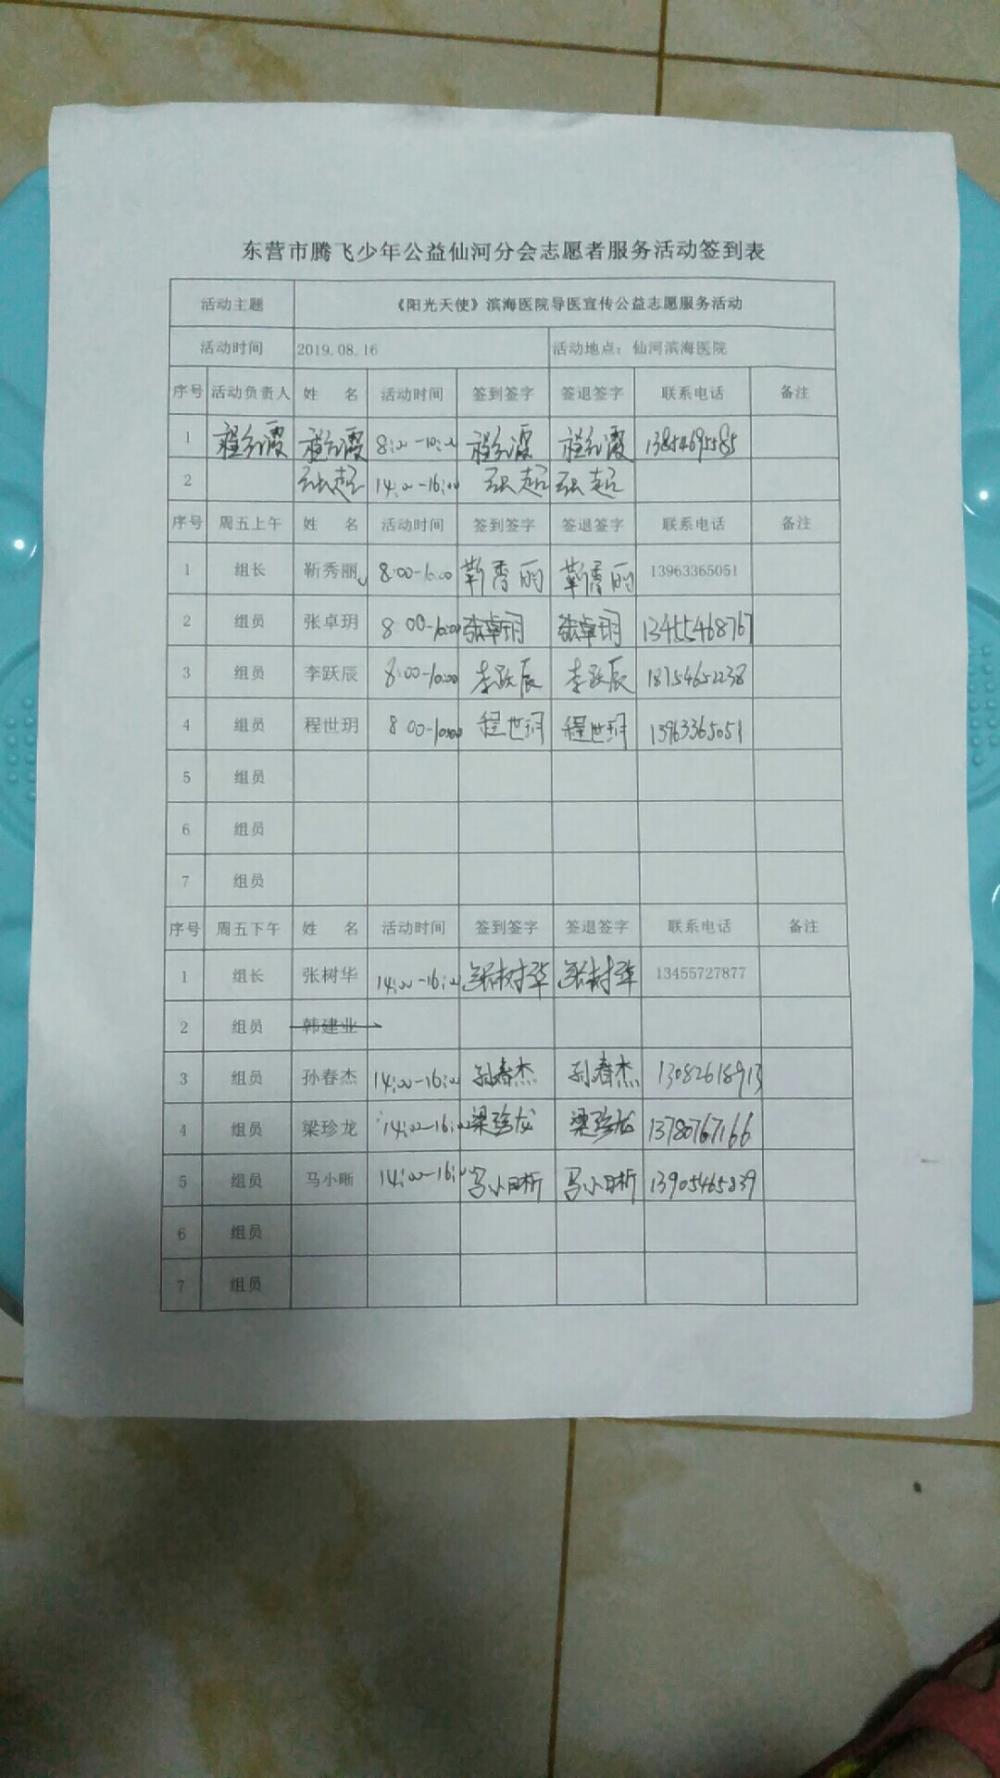 东营市腾飞少年公益仙河分会志愿者服务活动签到表
活动主题 《阳光天使》滨海医院导医宣传公益志愿服务活动
活动时间 2019.08.16 活动地点：仙河滨海医院
序号 活动负责人 姓 名 活动时间 签到签字 签退签字 联系电话 备注
1 8:00-10:00 13854695585
2 张起 14:00-16:00 张起 张起
序号 周五上午 姓 名 活动时间 签到签字 签退签字 联系电话 备注
1 组长 靳秀丽 8:00-10:00 靳秀丽 靳秀丽 13963365051
2 组员 张卓玥 8:00-10:00 张卓玥 张卓玥 13455468767
3 组员 李跃辰 8:00-10:00 李跃辰 李跃辰 18754652238
4 组员 程世玥 8:00-10:00 程世玥 程世玥 13963365051
5 组员
6 组员
7 组员
序号 周五下午 姓 名 活动时间 签到签字 签退签字 联系电话 备注
1 组长 张树华 14:00-16:00 张树华 张树华 13455727877
2 组员 韩建业
3 组员 孙春杰 14:00-16:00 孙春杰 孙春杰 13082618913
4 组员 梁珍龙 14:00-16:00 梁珍龙 梁珍龙 13780767166
5 组员 马小晰 14:00-16:00 马小晰 马小晰 13905465839
6 组员
7 组员